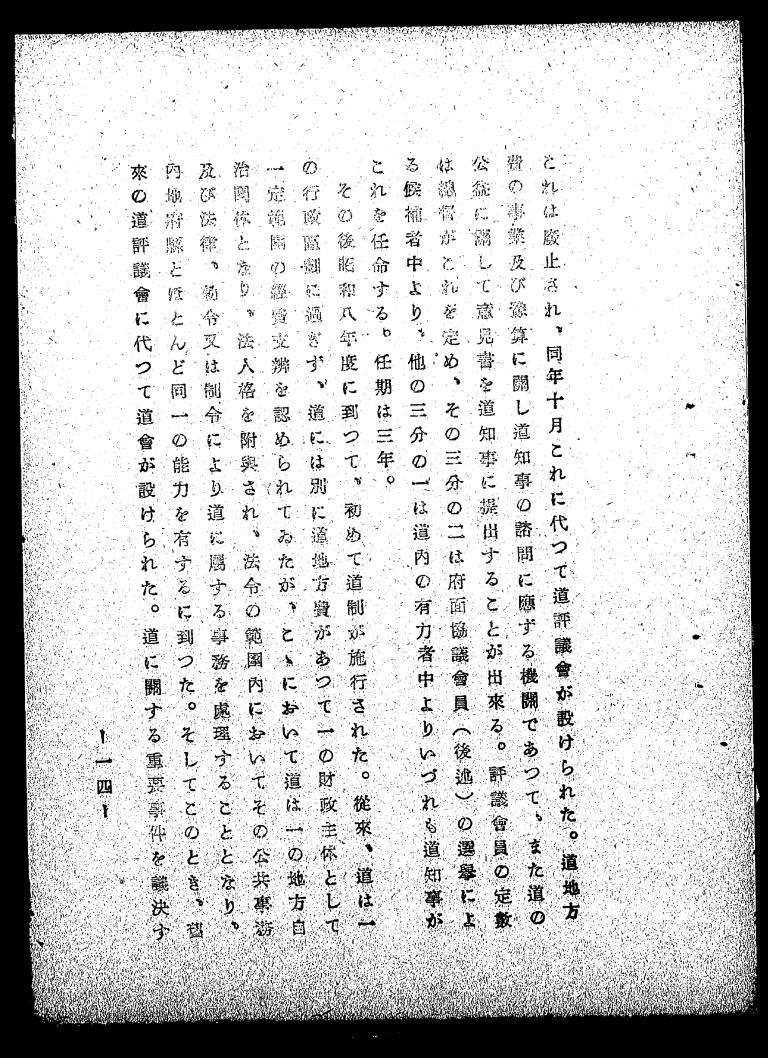 これは廢止され、同年十月これに代つて道評議會が設けられた。道地方
費の事業及び豫算に關し道知事の諮問に應ずる機關であつて、また道の
公益に關して意見書を道知事に提出することが出來る。評議會員の定數
は總督がこれを定め、その三分の二は府面協議會員（後述）の選擧によ
る候補者中より、他の三分の一は道内の有力者中よりいづれも道知事が
これを任命する。任期は三年。
その後昭和八年度に到つて、初めて道制が施行された。從來、道は一
の行政區劃に過ぎず、道には別に道地方費があつて一の財政主体として
一定範圍の經費支辨を認められてゐたが、こゝにおいて道は一の地方自
治団体となり、法人格を附與され、法令の範圍内においてその公共事務
及び法律、勅令又は制令により道に屬する事務を處理することとなり、
内地府縣とほとんど同一の能力を有するに到つた。そしてこのとき、舊
來の道評議會に代つて道會が設けられた。道に關する重要事件を議決す
ー一四ー